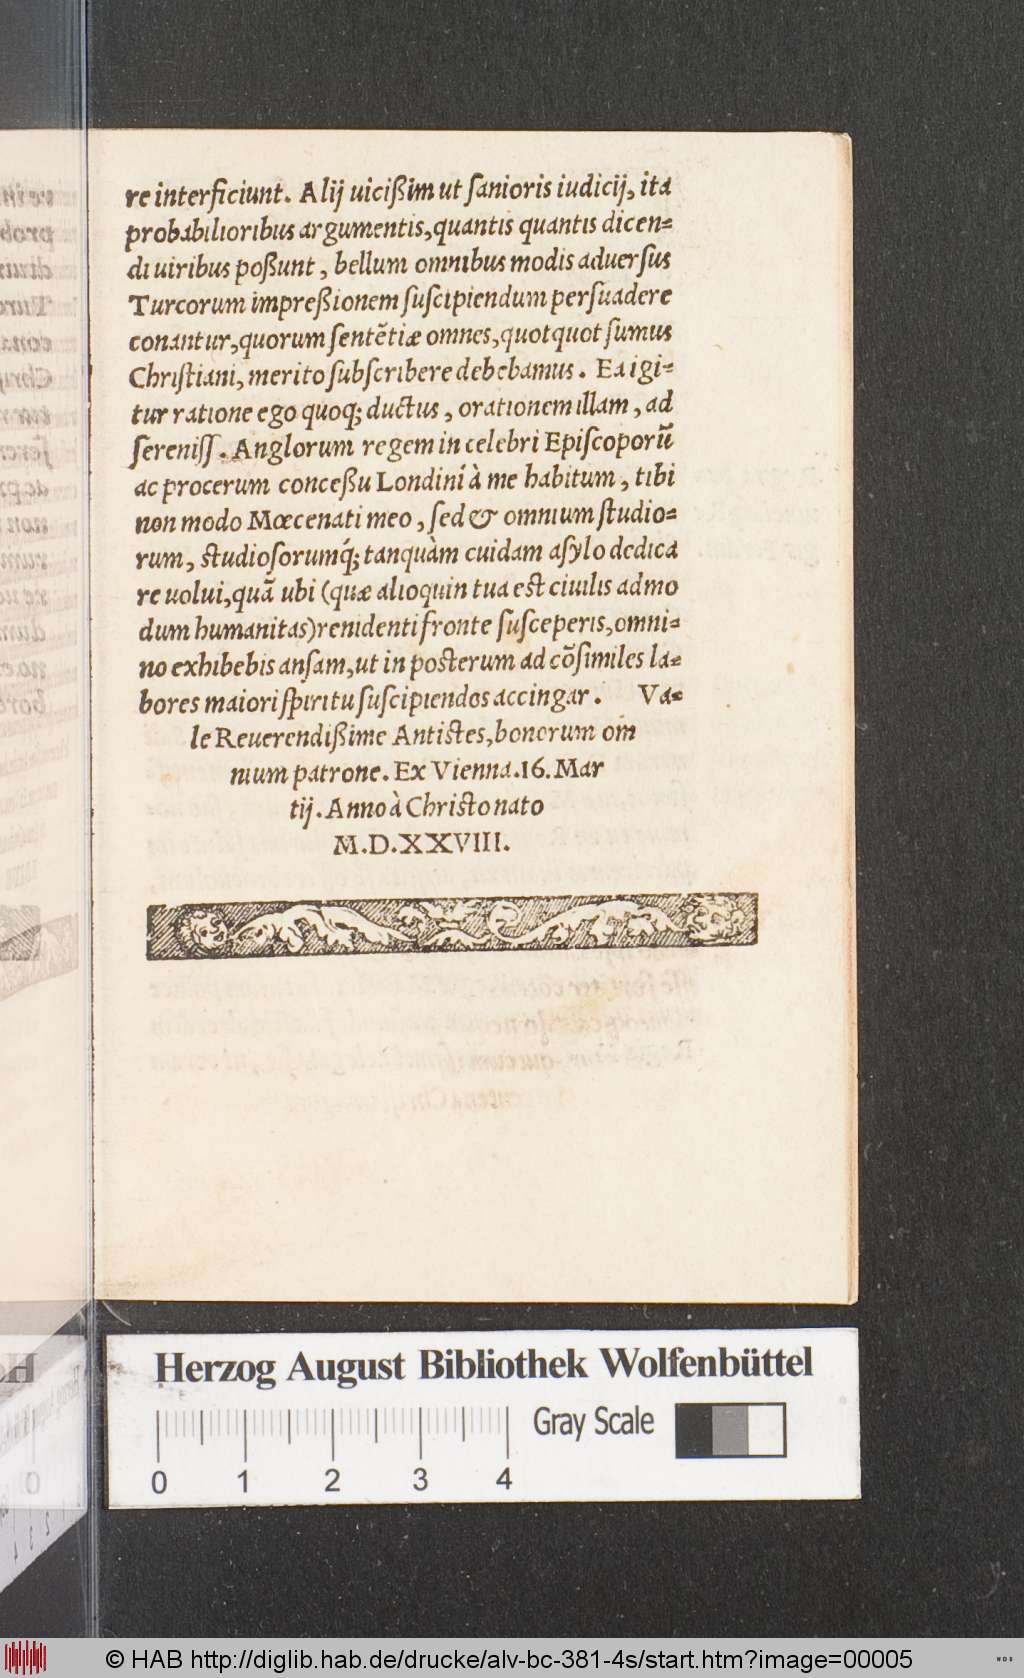 re interficiunt. Alij uicißim ut ſanioris iudicij, ita
probabilioribus argumentis, quantis quantis dicen=
di uiribus poßunt, bellum omnibus modis aduerſus
Turcorum impreßionem ſuſcipiendum perſuadere
conantur, quorum ſentẽtiæ omnes, quotquot ſumus
Chriſtiani, merito ſubſcribere debebamus. Ea igi=
tur ratione ego quoq; ductus, orationem illam, ad
ſereniſſ. Anglorum regem in celebri Epiſcoporũ
ac procerum conceßu Londini à me habitum, tibi
non modo Mœcenati meo, ſed & omnium ſtudio=
rum, ſtudioſorumq́; tanquàm cuidam aſylo dedica
re uolui, quã ubi (quæ alioquin tua eſt ciuilis admo
dum humanitas) renidenti fronte ſuſceperis, omni=
no exhibebis anſam, ut in poſterum ad cõſimiles la=
bores maiori ſpiritu ſuſcipiendos accingar. Va=
le Reuerendißime Antiſtes, bonorum om̃
nium patrone. Ex Vienna. 16. Mar
tij. Anno à Chriſto nato
M.D.XXVIII.
Herzog August Bibliothek Wolfenbüttel
Gray Scale
0 1 2 3 4
© HAB http://diglib.hab.de/drucke/alv-bc-381-4s/start.htm?image=00005